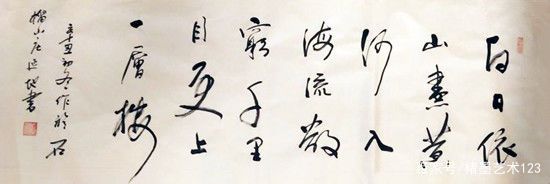 白日依
山盡黄
河入
海流欲
窮千里
目更上
一層樓
辛丑初冬作於石
山庄
書
号/猪墨艺术123